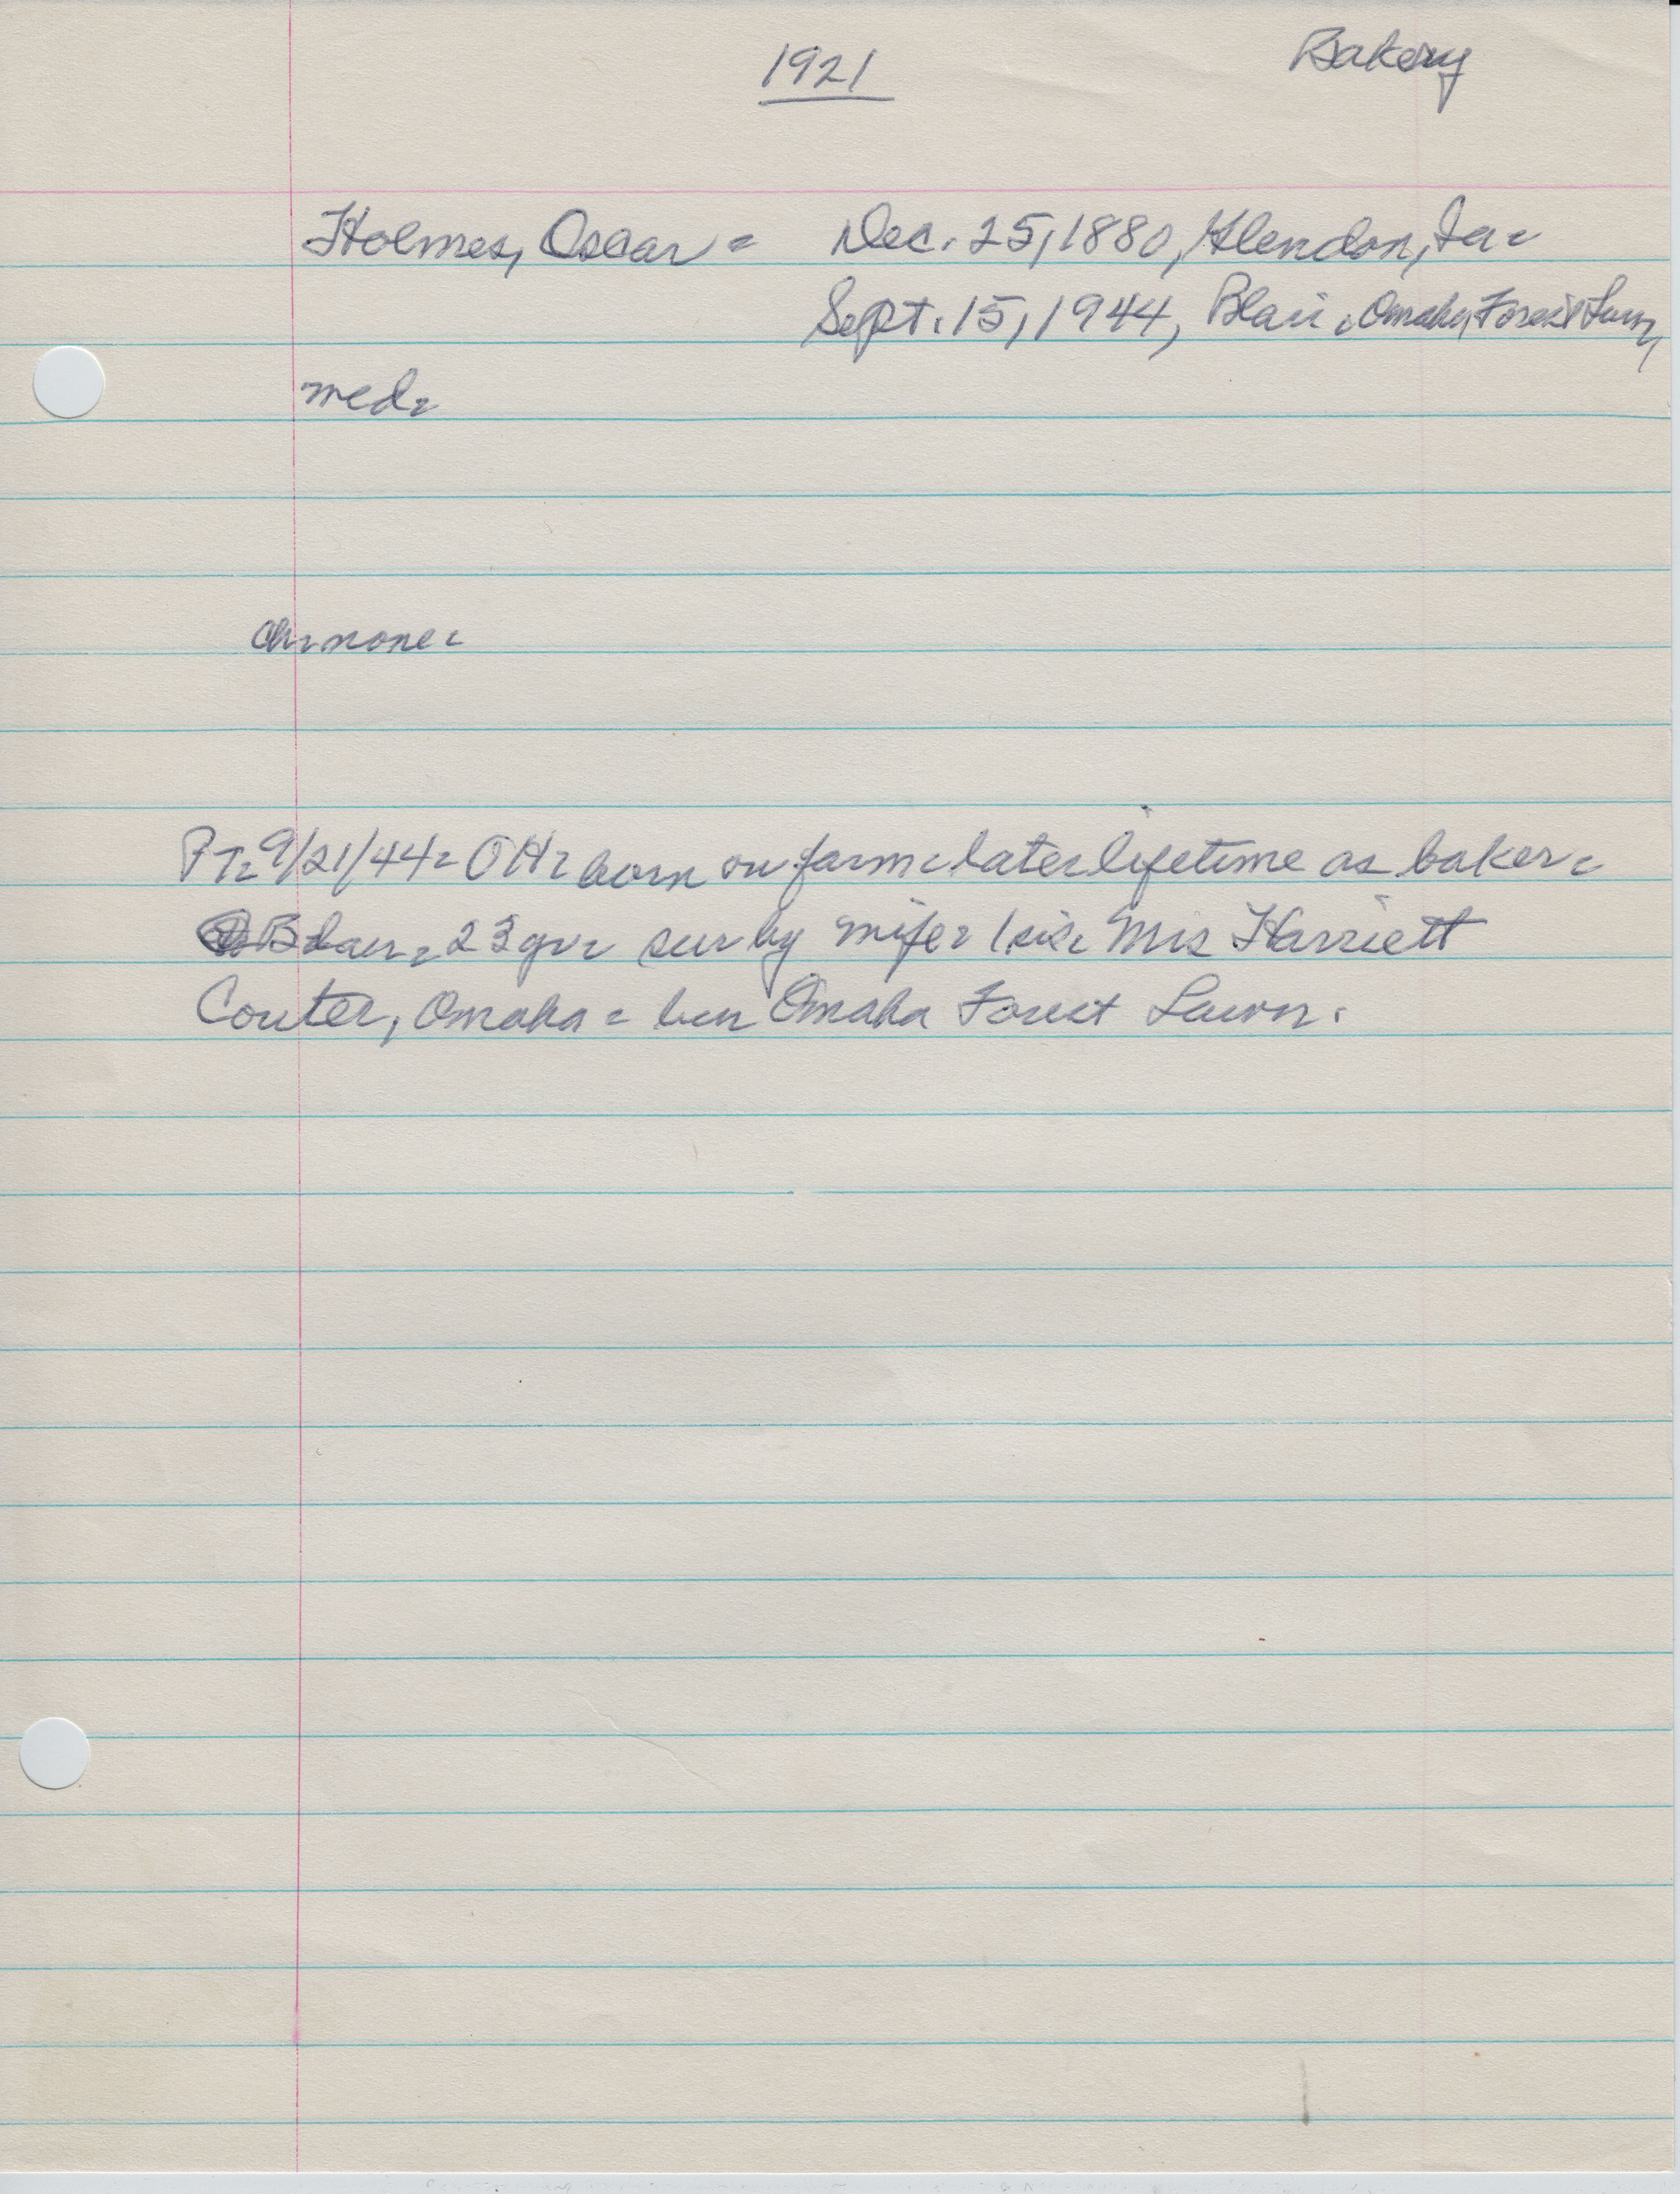 1921 Bakery
Holmes, Oscar = Dec. 25, 1880, Glendon, Ia =
Sept. 15, 1944, Blair, Omaha, Forest Lawn,
med =
ch = none =
PT = 9/21/44 = OH = born on farm = later lifetime as baker =
Blair = 23 yr = sur by wife = 1 sis = Mrs Harriett
Couter, Omaha = bur Omaha Forest Lawn.